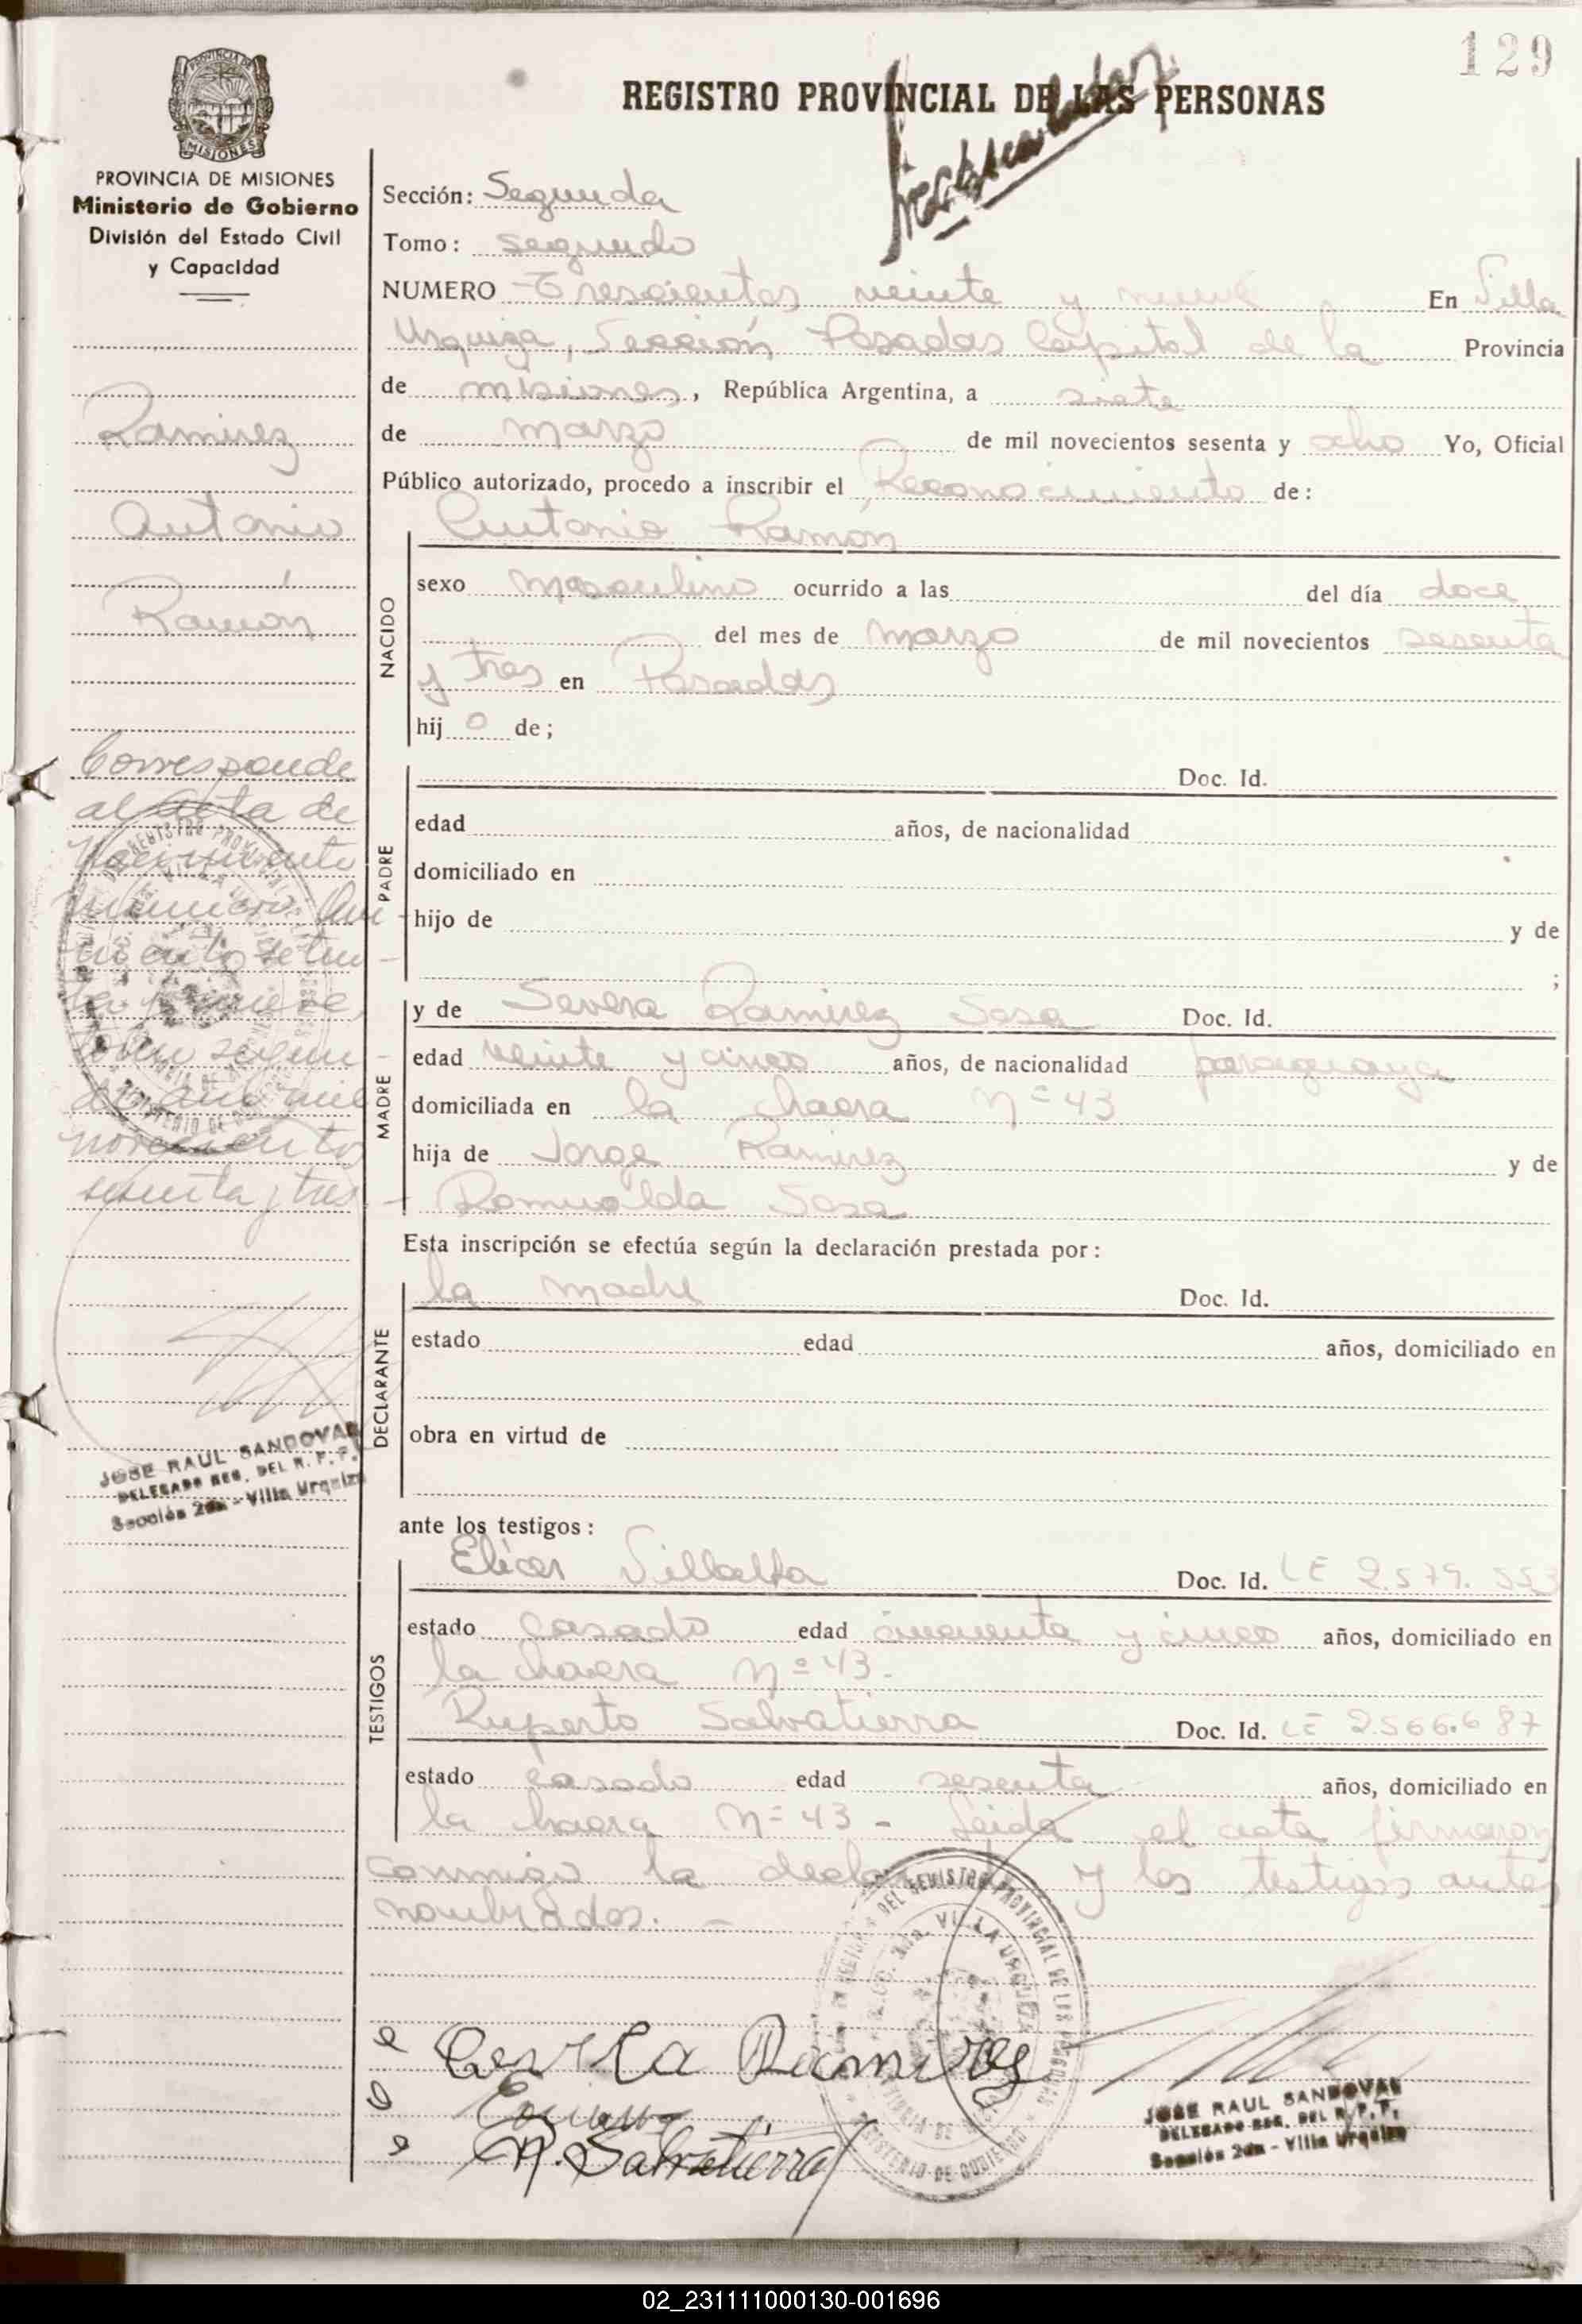 129
REGISTRO PROVINCIAL DE LAS PERSONAS
PROVINCIA DE MISIONES
Ministerio de Gobierno
División del Estado Civil
y Capacidad
Ramirez
Antonio
Ramón
Corresponde
al acta de
Nacimiento
número
año mil
novecientos
sesenta y tres
JOSE RAUL SANDOVAL
DELEGADO REG. DEL R. P. P.
Sección 2da - Villa Urquiza
Sección: Segunda
Tomo: segundo
NUMERO Trescientos veinte y nueve En Villa
Urquiza, Sección Posadas Capital de la Provincia
de misiones, República Argentina, a siete
de marzo de mil novecientos sesenta y ocho Yo, Oficial
Público autorizado, procedo a inscribir el Reconocimiento de:
NACIDO
Antonio Ramon
sexo masculino ocurrido a las del día doce
del mes de marzo de mil novecientos sesenta
y tres en Posadas
hij o de;
PADRE
Doc. Id.
edad años, de nacionalidad
domiciliado en
hijo de y de
;
MADRE
y de Severa Ramirez Sosa Doc. Id.
edad veinte y cinco años, de nacionalidad paraguaya
domiciliada en la chacra Nº 43
hija de Jorge Ramirez y de
Romualda Sosa
Esta inscripción se efectúa según la declaración prestada por:
DECLARANTE
la madre Doc. Id.
estado edad años, domiciliado en
obra en virtud de
ante los testigos:
TESTIGOS
Elicer Villalba Doc. Id. LE 2.579.553
estado casado edad cincuenta y cinco años, domiciliado en
la chacra Nº 43.
Ruperto Salvatierra Doc. Id. LE 2.566.687
estado casado edad sesenta años, domiciliado en
la chacra Nº 43 - Leida el acta firmaron
conmigo la y los testigos antes
nombrados. -
Ramires
R. Salvatierra
JOSE RAUL SANDOVAL
DELEGADO REG. DEL R. P. P.
Sección 2da - Villa Urquiza
02_231111000130-001696